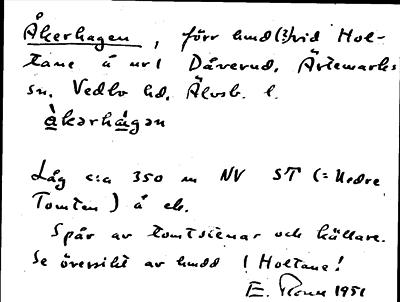 Åkerhagen, förr hmd(?) vid Hol-
tane å nr 1 Dåverud, Ärtemarks
sn, Vedbo hd, Älvsb. l.
àkərhágən
Låg c:a 350 m NV ST (= Nedre
Tomten) å ek.
Spår av tomtstenar och källare.
Se översikt av hmdd i Holtane!
E. 1951